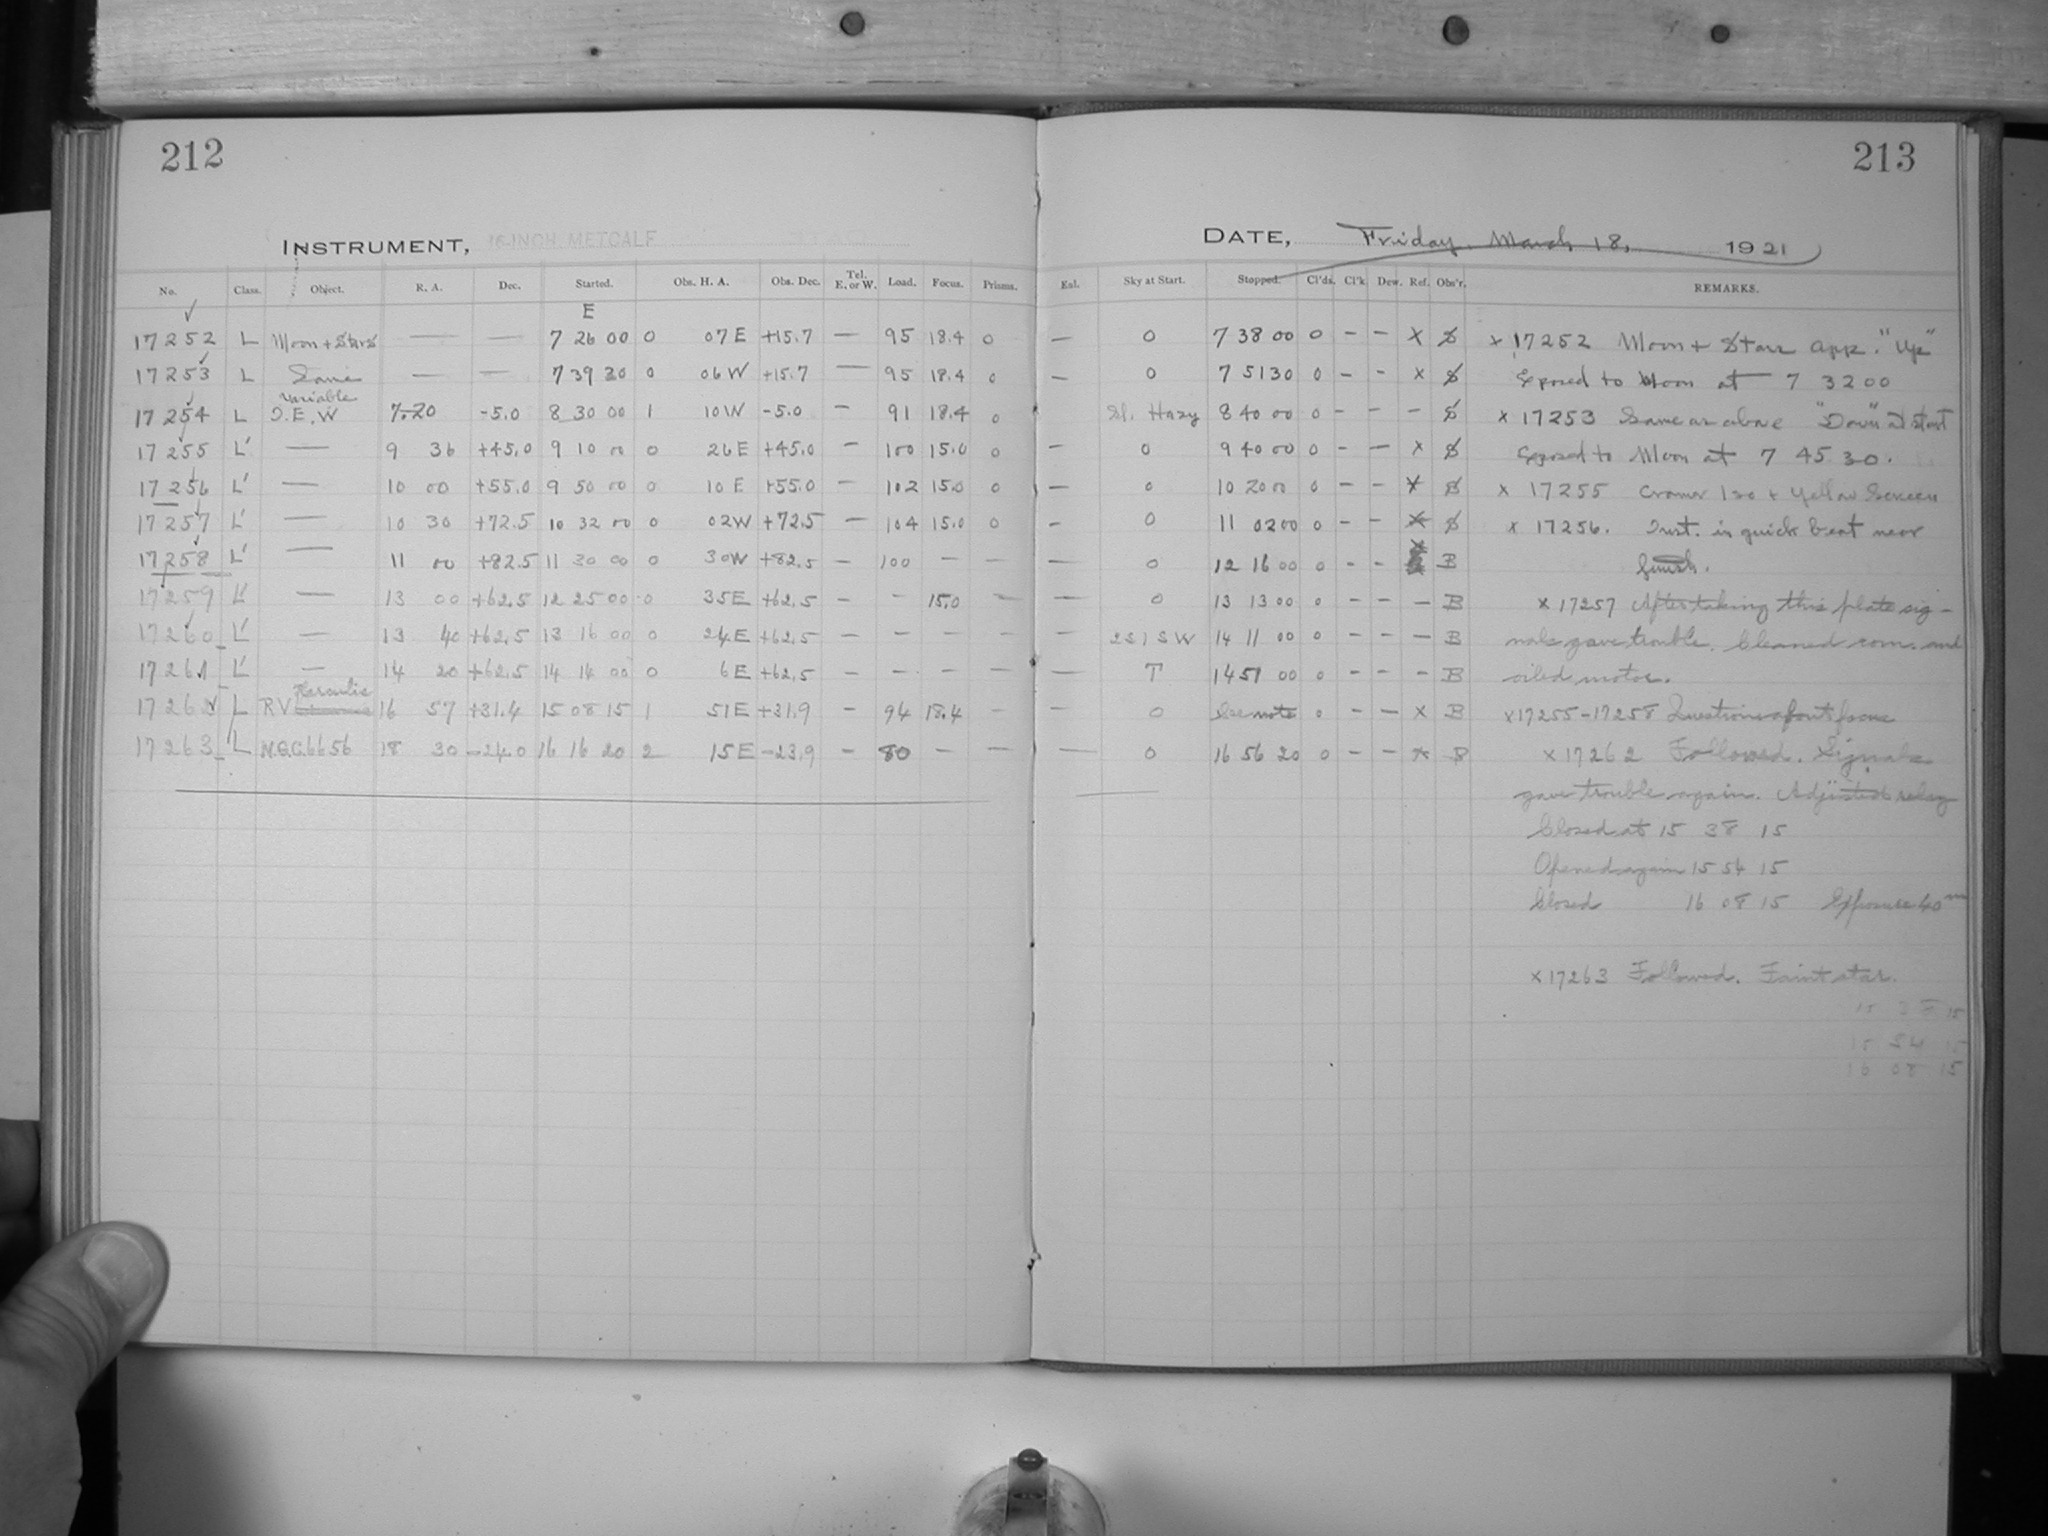 212
INSTRUMENT, 16-INCH METCALF
No. Class. Object. R. A. Dec. Started. Obs. H. A. Obs. Dec. Tel. E. or W. Load. Focus. Prisms.
E
17252 L Moon + Stars — — 7 26 00 0 07 E +15.7 — 95 18.4 0
17253 L Same — — 7 39 30 0 06 W +15.7 — 95 18.4 0
Variable
17254 L 7.20 -5.0 8 30 00 1 10W -5.0 — 91 18.4 0
17255 L' — 9 36 +45.0 9 10 00 0 26E +45.0 — 100 15.0 0
17256 L' — 10 00 +55.0 9 50 00 0 10 E +55.0 — 102 15.0 0
17257 L' — 10 30 +72.5 10 32 00 0 02W +72.5 — 104 15.0 0
17258 L' — 11 00 +82.5 11 30 00 0 30W +82.5 — 100 — —
17259 L' — 13 00 +62.5 12 25 00 0 35E +62.5 — — 15.0 —
17260 L' — 13 40 +62.5 13 16 00 0 24E +62.5 — — — —
17261 L' — 14 20 +62.5 14 14 00 0 6E +62.5 — — — —
Herculis
17262 L RV 16 57 +31.4 15 08 15 1 51E +31.9 — 94 18.4 —
17263 L N.G.C.6656 18 30 -24.0 16 16 20 2 15E -23.9 — 80 — —
213
DATE, Friday, March 18, 1921
Exl. Sky at Start. Stopped. Cl'ds. Cl'k Dew. Ref. Obs'r. REMARKS.
— 0 7 38 00 0 — — x S x 17252 Moon + Stars app. "Up"
— 0 7 51 30 0 — — x S Exposed to Moon at 7 32 00
Sl. Hazy 8 40 00 0 — — — S x 17253 Same as above "Down" at start
— 0 9 40 00 0 — — x S Exposed to Moon at 7 45 30.
— 0 10 20 00 0 — — x S x 17255 Cramer Iso + Yellow Screen
— 0 11 02 00 0 — — x S x 17256. Inst. in quick beat near
0 12 16 00 0 — — x B finish.
— 0 13 13 00 0 — — — B x 17257 After taking this plate sig-
— 2S1SW 14 11 00 0 — — — B nals gave trouble. Cleaned com. and
— T 14 57 00 0 — — — B oiled motor.
— 0 See note 0 — — x B x17255-17258 Question about focus
— 0 16 56 20 0 — — x B x 17262 Followed. Signals
gave trouble again. Adjusted relay
Closed at 15 38 15
Opened again 15 54 15
Closed 16 08 15 Exposure 40m
x 17263 Followed. Faint star.
15 38 15
15 54 15
16 08 15